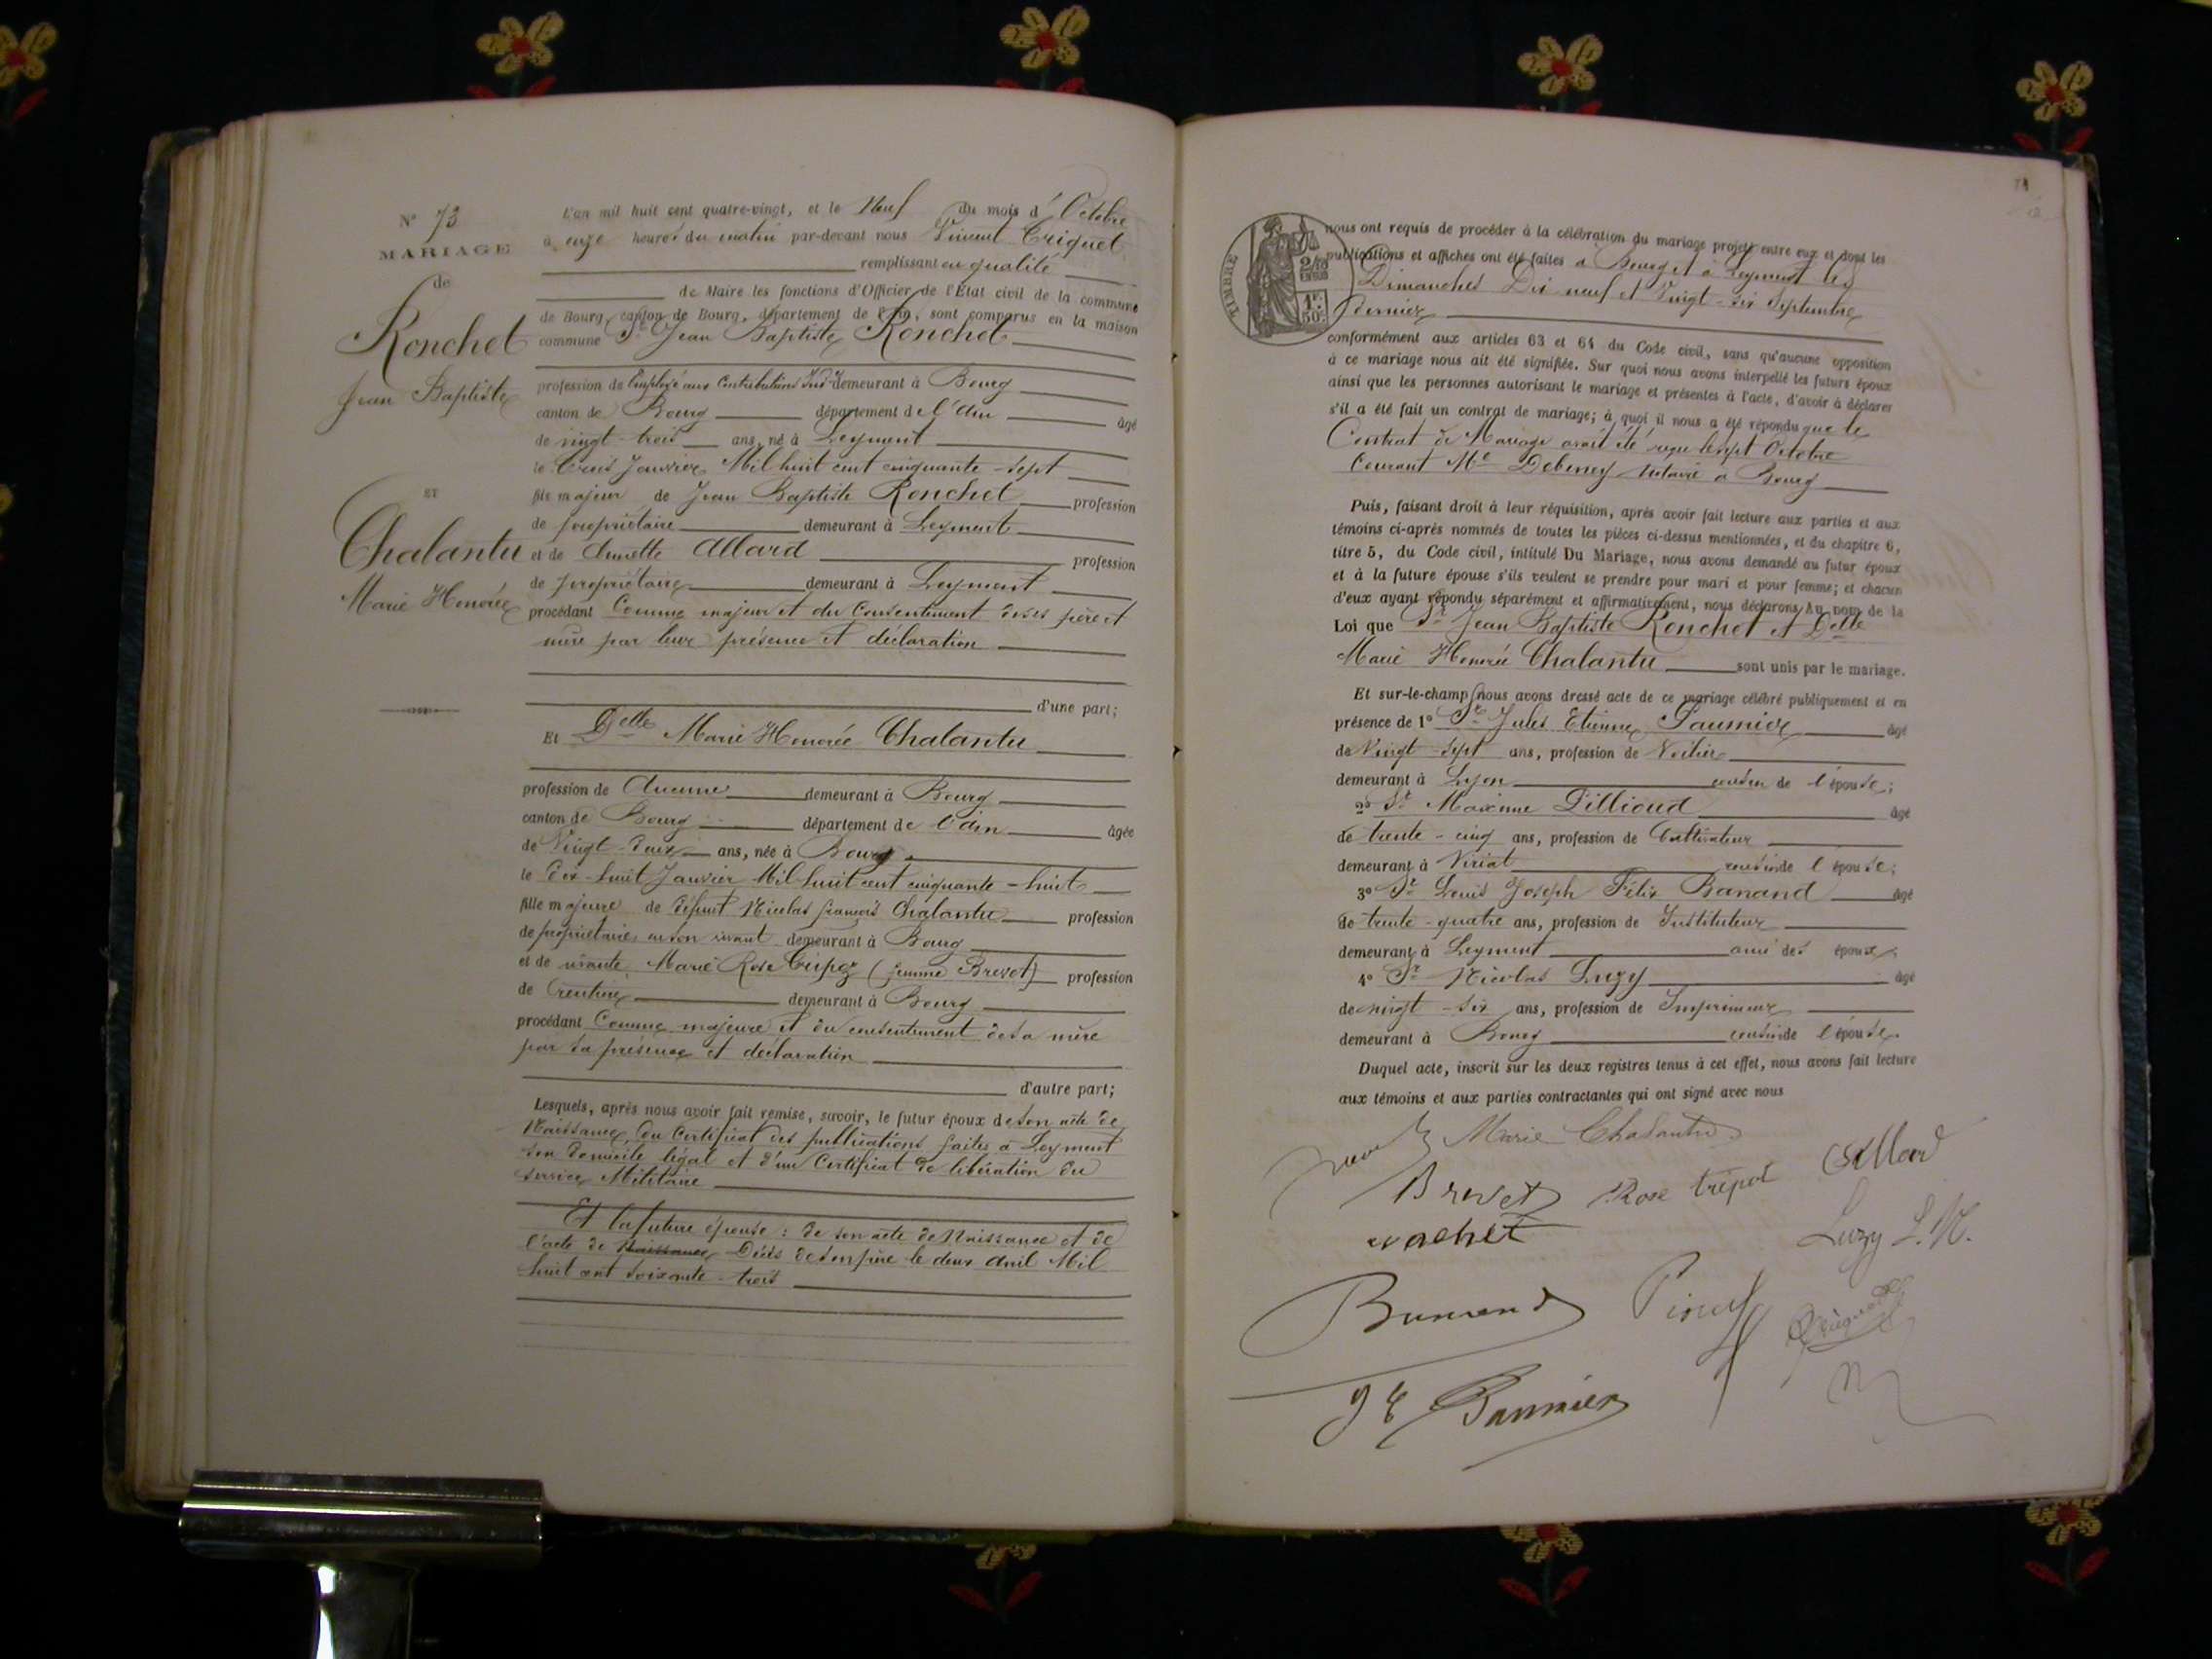 N° 73
MARIAGE
de
Ronchet
Jean Baptiste
ET
Chalantu
Marie Honorée
L'an mil huit cent quatre-vingt, et le Neuf du mois d'Octobre
à onze heures du matin par-devant nous Vincent Criquet
remplissant en qualité
de Maire les fonctions d'Officier de l'État civil de la commune
de Bourg, canton de Bourg, département de l'Ain, sont comparus en la maison
commune Sr Jean Baptiste Ronchet
profession de Employé aux Contributions Ind. demeurant à Bourg
canton de Bourg département de l'Ain âgé
de vingt-trois ans, né à Leyment
le trois Janvier Mil huit cent cinquante-sept
fils majeur de Jean Baptiste Ronchet profession
de propriétaire demeurant à Leyment
et de Annette Allard profession
de propriétaire demeurant à Leyment
procédant Comme majeur et du Consentiment de ses père et
mère par leur présence et déclaration
d'une part;
Et Delle Marie Honorée Chalantu
profession de Aucune demeurant à Bourg
canton de Bourg département de l'Ain âgée
de Vingt-deux ans, née à Bourg
le dix-huit Janvier Mil huit cent cinquante-huit
fille majeure de défunt Nicolas françois Chalantu profession
de propriétaire en son vivant demeurant à Bourg
et de vivante Marie Rose (femme Brevet) profession
de rentière demeurant à Bourg
procédant Comme majeure et du consentement de sa mère
par sa présence et déclaration
d'autre part;
Lesquels, après nous avoir fait remise, savoir, le futur époux de son acte de
Naissance, du Certificat des publications faites à Leyment
son domicile légal et d'un Certificat de libération du
service Militaire
Et la future épouse : de son acte de Naissance et de
l'acte de Naissance Décès de son père le deux Avril Mil
huit cent soixante-trois
TIMBRE
2/10 EN SUS
1F. 50c.
nous ont requis de procéder à la célébration du mariage projeté entre eux et dont les
publications et affiches ont été faites à Bourg et à Leyment les
Dimanches Dix neuf et Vingt-six Septembre
dernier
conformément aux articles 63 et 64 du Code civil, sans qu'aucune opposition
à ce mariage nous ait été signifiée. Sur quoi nous avons interpellé les futurs époux
ainsi que les personnes autorisant le mariage et présentes à l'acte, d'avoir à déclarer
s'il a été fait un contrat de mariage; à quoi il nous a été répondu que le
Contrat de Mariage avait été reçu le sept Octobre
Courant Me Debeney Notaire à Bourg
Puis, faisant droit à leur réquisition, après avoir fait lecture aux parties et aux
témoins ci-après nommés de toutes les pièces ci-dessus mentionnées, et du chapitre 6,
titre 5, du Code civil, intitulé Du Mariage, nous avons demandé au futur époux
et à la future épouse s'ils veulent se prendre pour mari et pour femme; et chacun
d'eux ayant répondu séparément et affirmativement, nous déclarons Au nom de la
Loi que Sr Jean Baptiste Ronchet et Delle
Marie Honorée Chalantu sont unis par le mariage.
Et sur-le-champ nous avons dressé acte de ce mariage célébré publiquement et en
présence de 1° Sr Jules Etienne Paumier âgé
de Vingt-sept ans, profession de Voilier
demeurant à Lyon cousin de l'épouse;
2° Sr Maxime Pillioud âgé
de trente-cinq ans, profession de Cultivateur
demeurant à Viriat cousin de l'épouse;
3° Sr Louis Joseph Félix Banand âgé
de trente-quatre ans, profession de Instituteur
demeurant à Leyment ami des époux
4° Sr Nicolas Luzy âgé
de vingt-six ans, profession de Imprimeur
demeurant à Bourg cousin de l'épouse
Duquel acte, inscrit sur les deux registres tenus à cet effet, nous avons fait lecture
aux témoins et aux parties contractantes qui ont signé avec nous
Marie Chalantu
Brevet Rose trépoz Allard
Luzy L. N.
J E Paumier